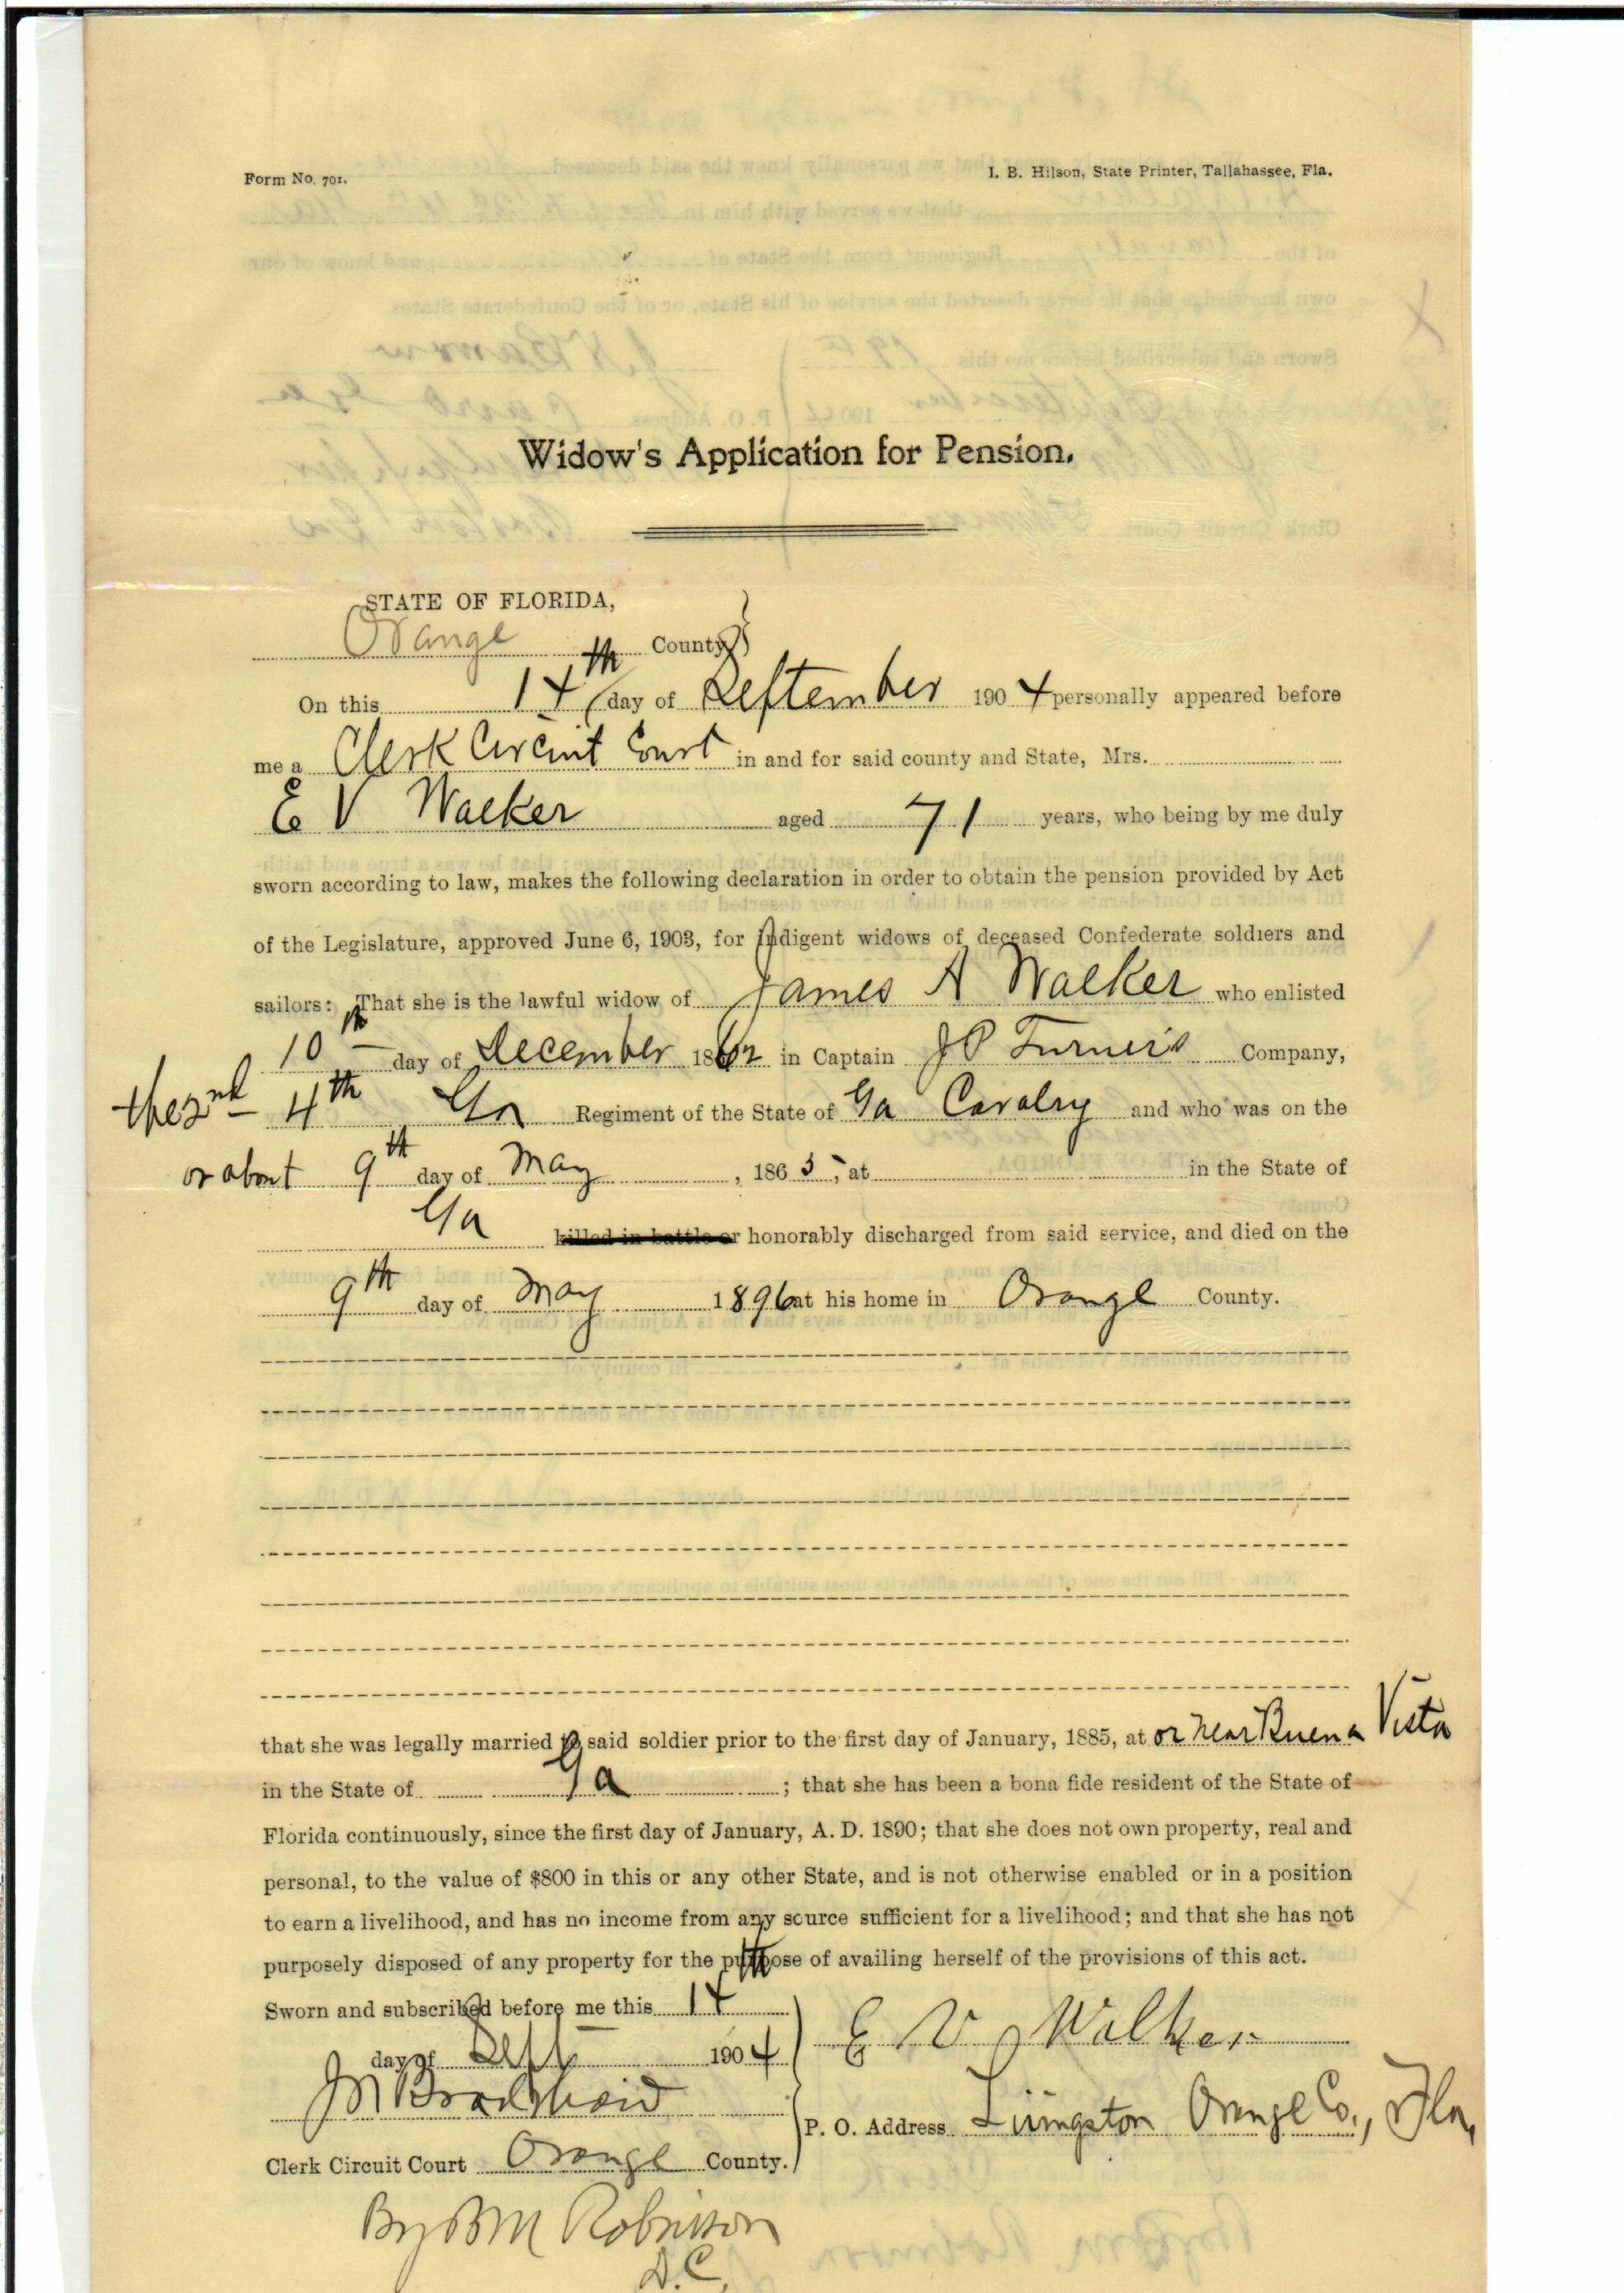 Form No. 701.
I. B. Hilson, State Printer, Tallahassee, Fla.
Widow's Application for Pension.
STATE OF FLORIDA,
Orange County
On this 14th day of September 1904 personally appeared before
me a Clerk Circuit Court in and for said county and State, Mrs.
E V Walker aged 71 years, who being by me duly
sworn according to law, makes the following declaration in order to obtain the pension provided by Act
of the Legislature, approved June 6, 1903, for indigent widows of deceased Confederate soldiers and
sailors: That she is the lawful widow of James A Walker who enlisted
10th day of December 1862 in Captain J P Turner's Company,
the 2nd 4th Ga Regiment of the State of Ga Cavalry and who was on the
or about 9th day of May, 1865, at in the State of
Ga killed in battle or honorably discharged from said service, and died on the
9th day of May 1896 at his home in Orange County.
that she was legally married to said soldier prior to the first day of January, 1885, at or near Buena Vista
in the State of Ga; that she has been a bona fide resident of the State of
Florida continuously, since the first day of January, A. D. 1890; that she does not own property, real and
personal, to the value of $800 in this or any other State, and is not otherwise enabled or in a position
to earn a livelihood, and has no income from any source sufficient for a livelihood; and that she has not
purposely disposed of any property for the purpose of availing herself of the provisions of this act.
Sworn and subscribed before me this 14th
day of Sept 1904
E V Walker
J M Bradshaw
P. O. Address Livingston Orange Co., Fla,
Clerk Circuit Court Orange County.
By B M Robinson
D.C.